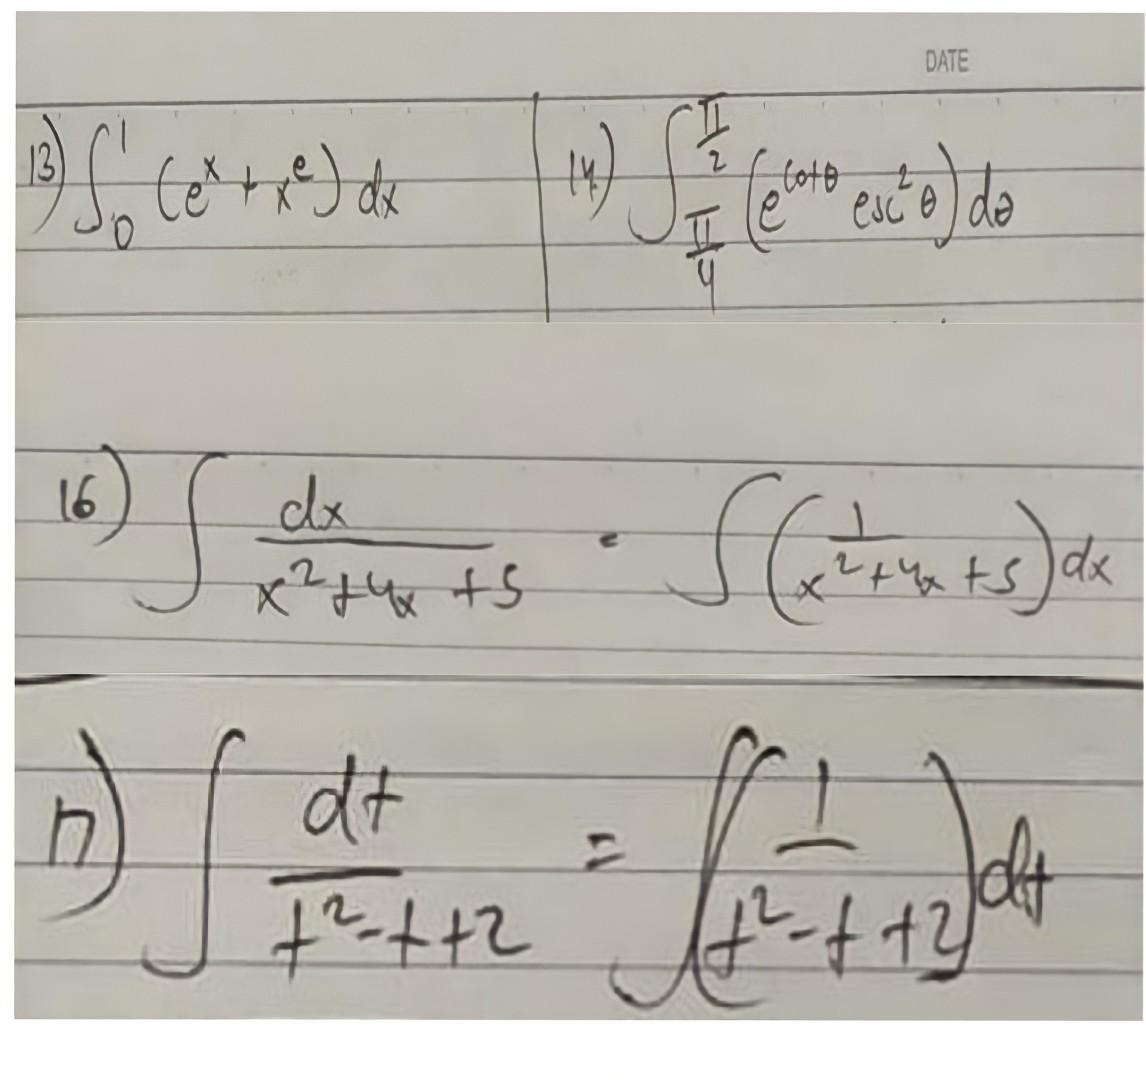 DATE
13) ∫₀¹ (eˣ + xᵉ) dx
14) ∫_{π/4}^{π/2} (e^{cotθ} csc²θ) dθ
16) ∫ dx/(x²+4x+5) = ∫ (1/(x²+4x+5)) dx
17) ∫ dt/(t²-t+2) = ∫ (1/(t²-t+2)) dt